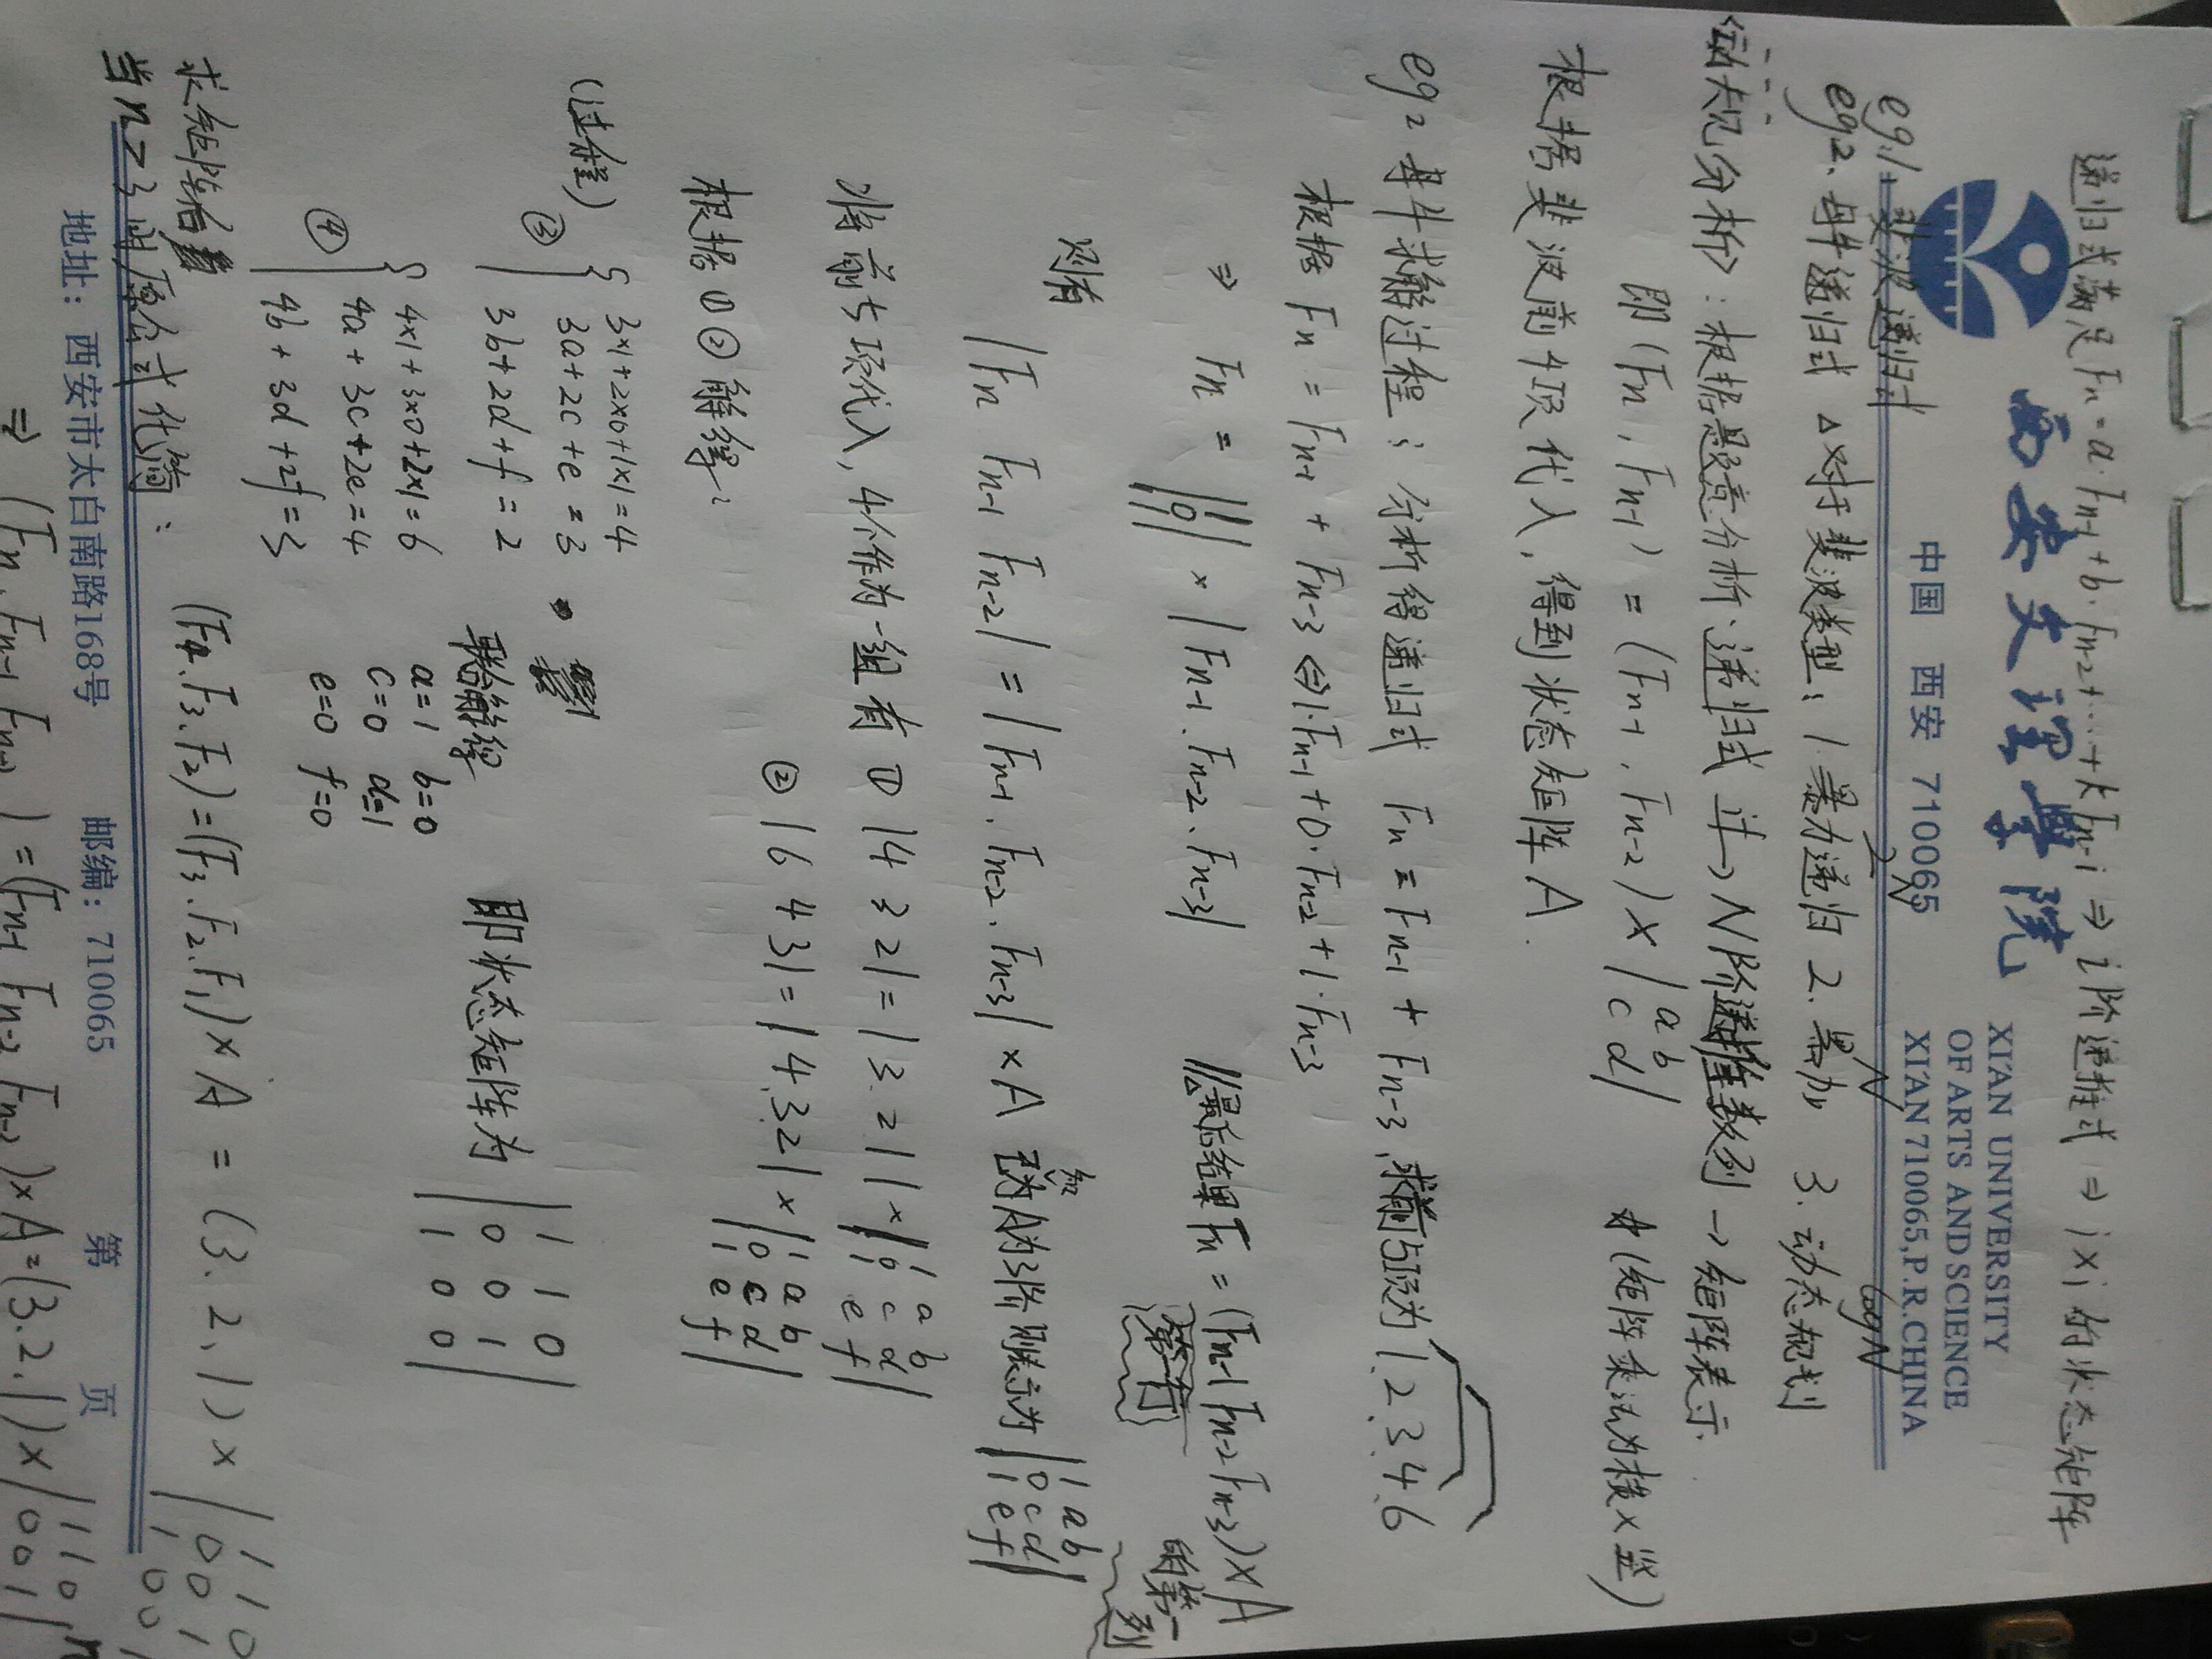 递归式满足 Fn = a·Fn-1 + b·Fn-2 + … + k Fn-i ⇒ i阶递推式 ⇒ i×i 的状态矩阵
西安文理學院
XI'AN UNIVERSITY
OF ARTS AND SCIENCE
中国 西安 710065
XI'AN 710065,P.R.CHINA
eg1、斐波递归式
2^N N logN
eg2、母牛递归式 △对于斐波类型: 1.暴力递归 2. 累加 3. 动态规划
分析>: 根据题意分析·递归式 → N阶递推数列 → 矩阵表示
即 (Fn , Fn-1) = (Fn-1 , Fn-2) × |a b
c d| (矩阵乘法为横×竖)
根据斐波前4项代入,得到状态矩阵A.
eg2 母牛求解过程: 分析得递归式 Fn = Fn-1 + Fn-3,求前5项为 1.2.3.4.6
根据 Fn = Fn-1 + Fn-3 ⇔ 1·Fn-1 + 0·Fn-2 + 1·Fn-3
⇒ Fn = |1
0
1| × |Fn-1、Fn-2、Fn-3| //△最后结果Fn = (Fn-1 Fn-2 Fn-3)×A
第一行 的第一列
则有
|Fn Fn-1 Fn-2| = |Fn-1、Fn-2、Fn-3| × A 知A为3阶则表示为 |1 a b
0 c d
1 e f|
将前5项代入,4个作为一组有 ① |4 3 2| = |3.2 1| × |1 a b
0 c d
1 e f|
② |6 4 3| = |4.3.2| × |1 a b
0 c d
1 e f|
根据①②解得:
(过程) ③ { 3×1+2×0+1×1=4
3a+2c+e=3
3b+2d+f=2
联合解得
a=1 b=0
c=0 d=1
e=0 f=0
即状态矩阵为 |1 1 0
0 0 1
1 0 0|
④ { 4×1+3×0+2×1=6
4a+3c+2e=4
4b+3d+2f=3
求矩阵后
当n>3时原公式化简: (F4、F3、F2)=(F3、F2、F1)×A = (3.2.1) × |1 1 0
0 0 1
1 0 0|
地址: 西安市太白南路168号 邮编: 710065 第 页
⇒ (Fn、Fn-1 Fn-2) = (Fn-1 Fn-2 Fn-3)×A=(3.2.1)×|1 1 0
0 0 1| n